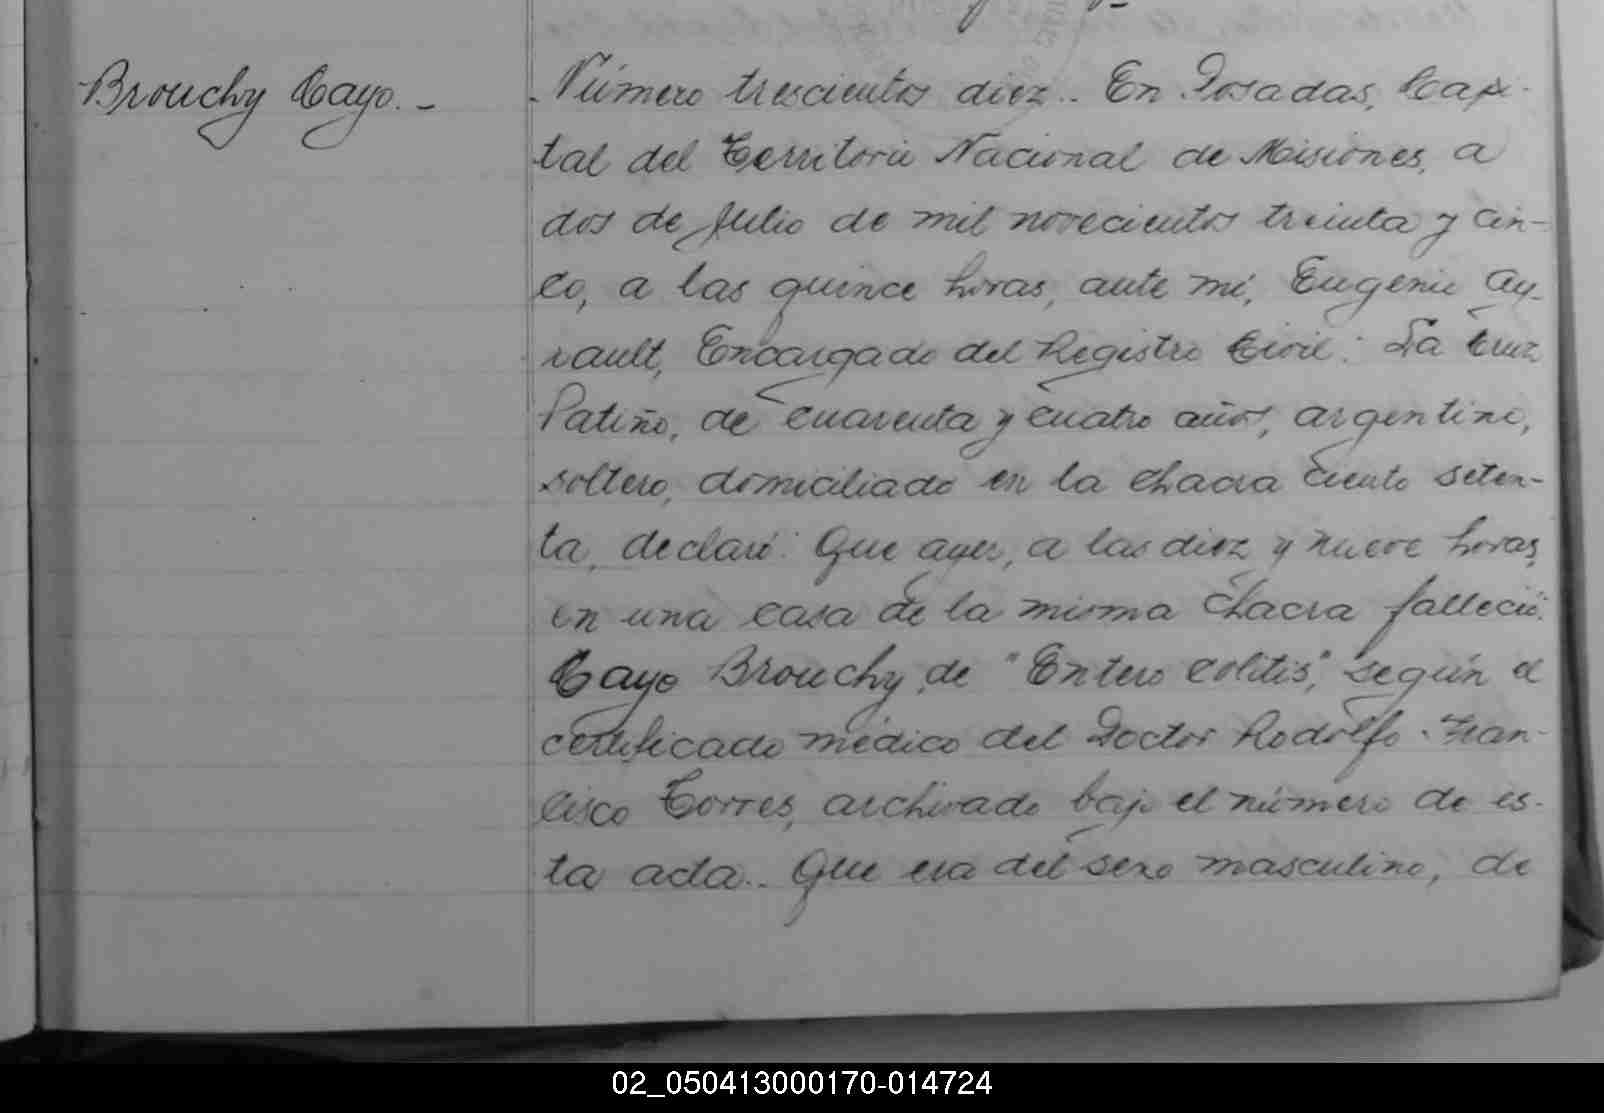 Brouchy Cayo. -
Número trescientos diez.. En Posadas, Capi-
tal del Territorio Nacional de Misiones, a
dos de Julio de mil novecientos treinta y cin-
co, a las quince horas, ante mí, Eugenio Ay-
rault, Encargado del Registro Civil: La Cruz
Patiño, de cuarenta y cuatro años, argentino,
soltero, domiciliado en la chacra ciento seten-
ta, declaró: Que ayer, a las diez y nueve horas,
en una casa de la misma chacra falleció:
Cayo Brouchy, de "Entero colitis", según el
certificado médico del Doctor Rodolfo Fran-
cisco Torres, archivado bajo el número de es-
ta acta.. Que era del sexo masculino, de
02_050413000170-014724